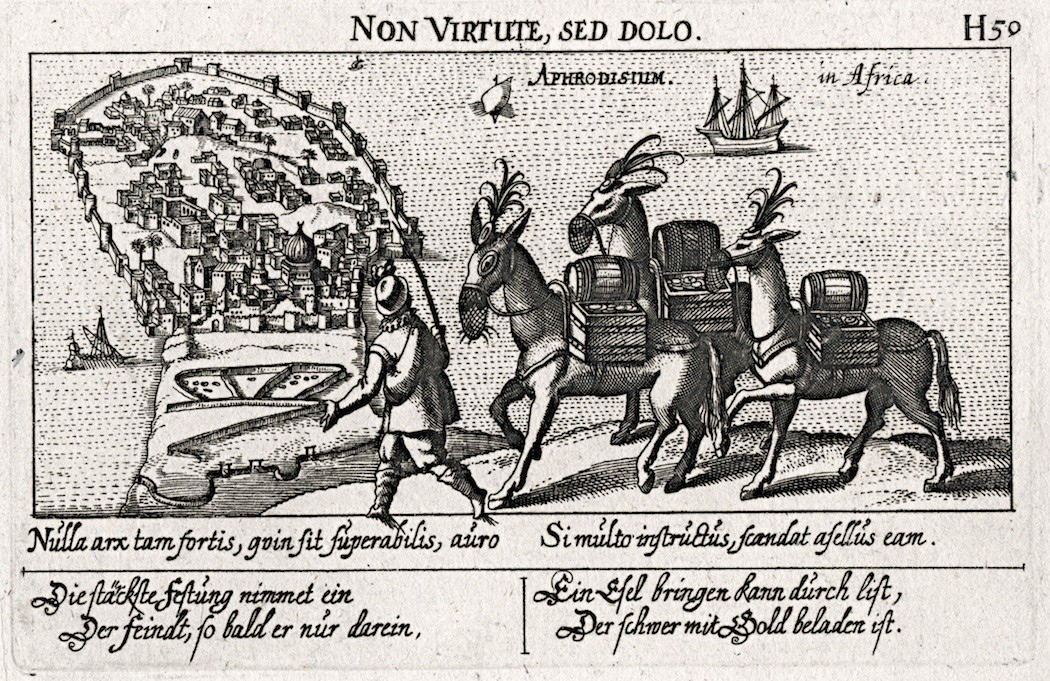 NON VIRTUTE, SED DOLO.
H59
APHRODISIUM. in Africa.
Nulla arx tam fortis, qvin sit superabilis, auro
Si multo instructus, scandat asellus eam.
Die stärkste festung nimmet ein
Der feindt, so bald er nur darein,
Ein Esel bringen kann durch list,
Der schwer mit Gold beladen ist.